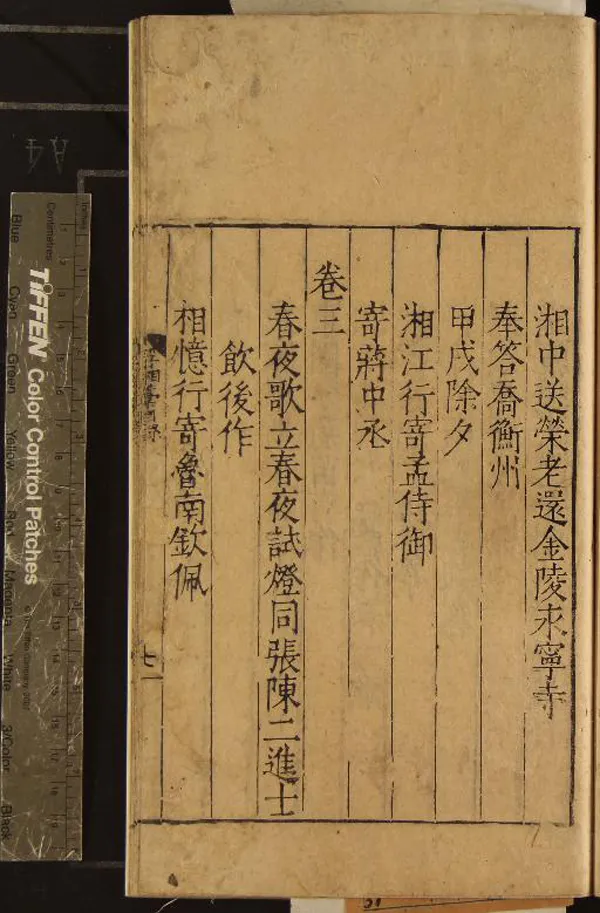 湘中送榮老還金陵永寧寺
奉答喬衡州
甲戌除夕
湘江行寄孟侍御
寄蔣中丞
卷三
春夜歌立春夜試燈同張陳二進士
飲後作
相憶行寄魯南欽佩
七
TIFFEN Color Control Patches
Blue
Cyan
Green
Yellow
Red
Magenta
White
3/Color
Black
Centimetres
Inches
A4